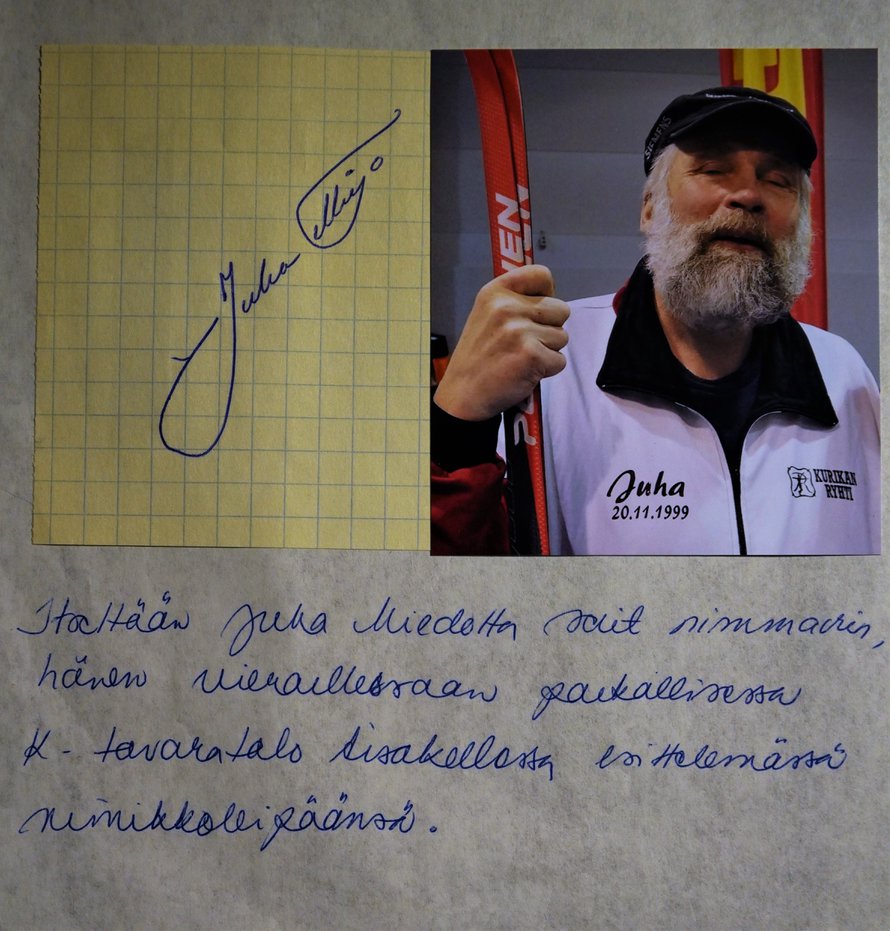 Juha Mieto
SIEMENS
Juha
20.11.1999
KURIKAN
RYHTI
Itseltään Juha Miedolta sait nimmarin,
hänen vieraillessaan paikallisessa
K-tavaratalo Iisakellossa esittelemässä
nimikkoleipäänsä.